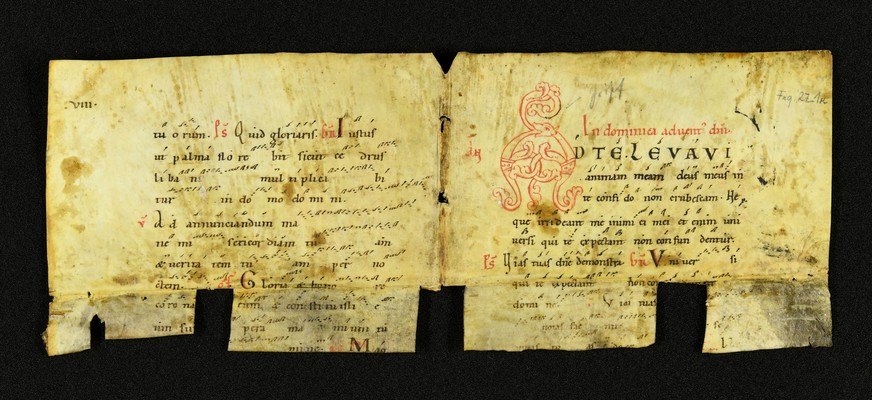 ·VIII·
tu orum. Ps Quid gloriaris. Gr Iustus
ut palma flo re bit sicut ce drus
liba ni mul tiplica bi
tur in do mo domini.
V Ad annunciandum ma
ne mi sericor diam tu am
& veritatem tu am per no
ctem. Gloria & hono re
coro na eum & constituisti e
um su pera ma nuum tu
In dominica aduent dni
AD TE LEVAVI
animam meam deus meus in
te confido non erubescam. Ne
que irrideant me inimi ci mei et enim uni
uersi qui te expectant non confun dentur.
Ps Vias tuas dne demonstra. Gr Vniuer si
qui te expectant non con
domi ne V Vias tuas
notas fac mi